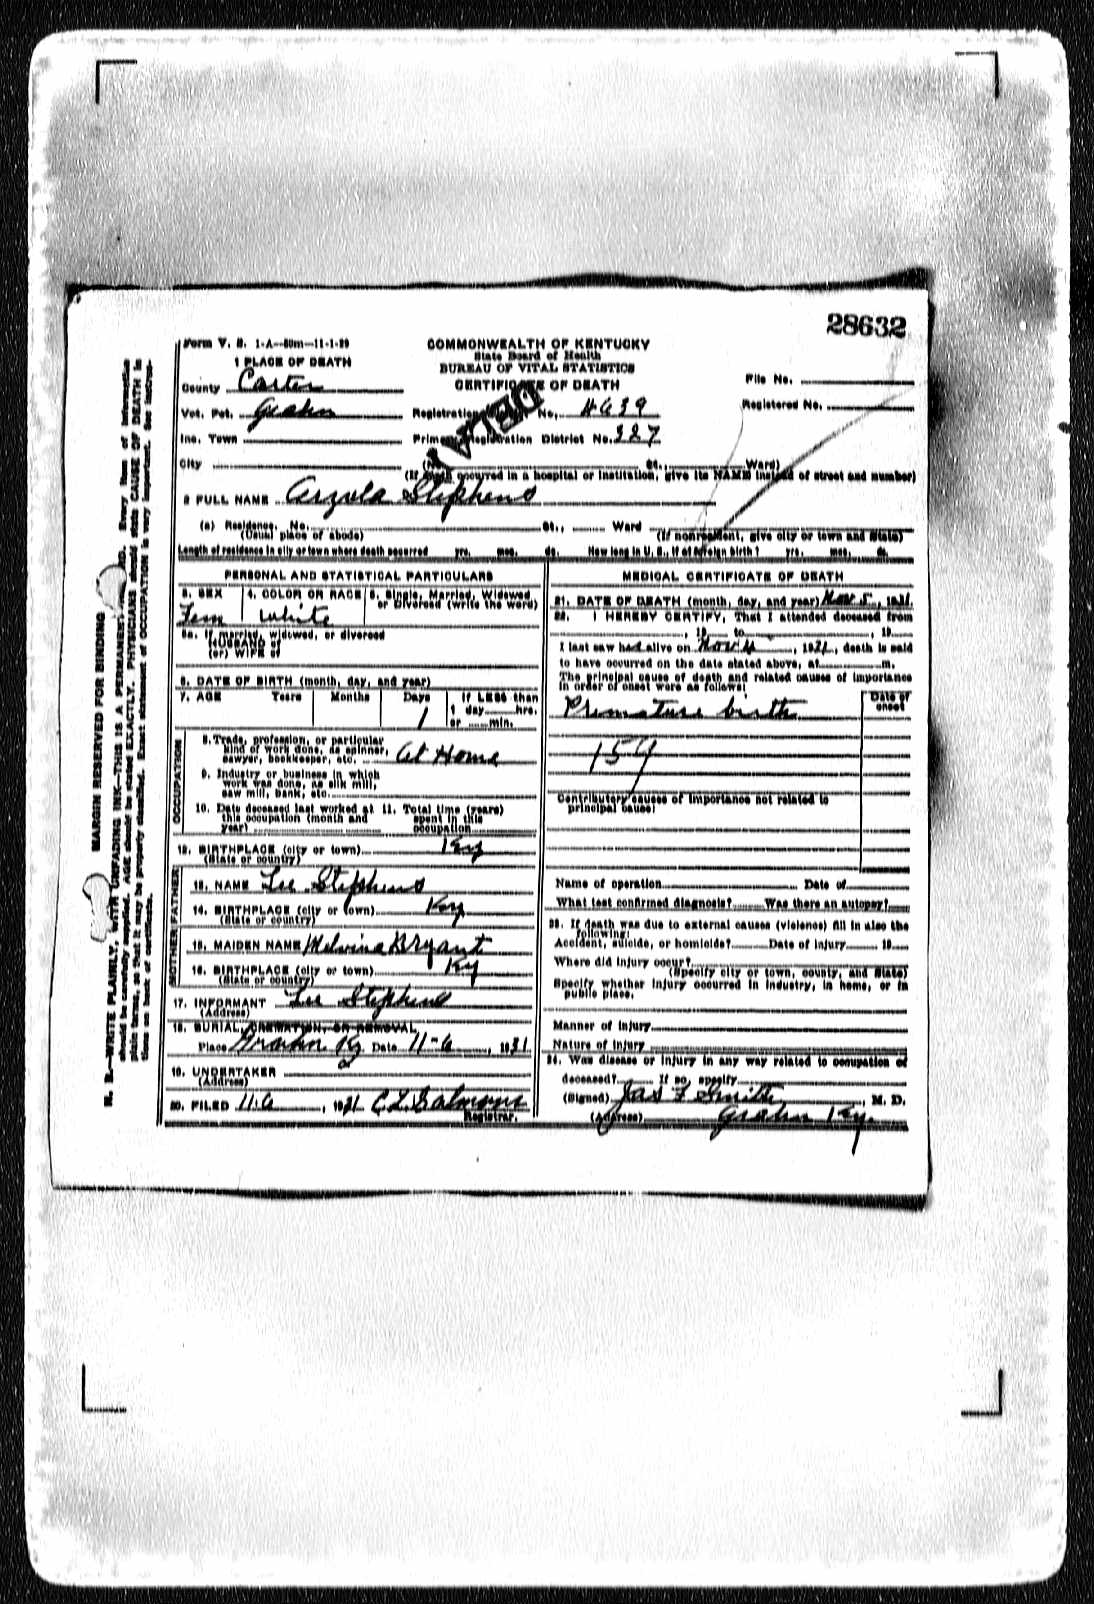 28632
Form V. S. 1-A--50m--11-1-29
COMMONWEALTH OF KENTUCKY
State Board of Health
BUREAU OF VITAL STATISTICS
CERTIFICATE OF DEATH
1 PLACE OF DEATH
County Carter
File No.
Vot. Pct. Grahn
Registration No. 639
Registered No.
Inc. Town
Primary Registration District No. 327
City
(No. St., Ward)
(If death occurred in a hospital or institution, give its NAME instead of street and number)
2 FULL NAME Arzula Stephens
(a) Residence. No. St., Ward
(Usual place of abode)
(If nonresident, give city or town and State)
Length of residence in city or town where death occurred yrs. mos. ds. How long in U. S., if of foreign birth? yrs. mos. ds.
PERSONAL AND STATISTICAL PARTICULARS
3. SEX
4. COLOR OR RACE
5. Single, Married, Widowed,
or Divorced (write the word)
Fem
White
5a. If married, widowed, or divorced
HUSBAND of
(or) WIFE of
6. DATE OF BIRTH (month, day, and year)
7. AGE Years Months Days If LESS than
1 day hrs.
or min.
1
8. Trade, profession, or particular
kind of work done, as spinner,
sawyer, bookkeeper, etc. At Home
9. Industry or business in which
work was done, as silk mill,
saw mill, bank, etc.
10. Date deceased last worked at
this occupation (month and
year)
11. Total time (years)
spent in this
occupation
OCCUPATION
12. BIRTHPLACE (city or town) Ky
(State or country)
FATHER
13. NAME Lee Stephens
14. BIRTHPLACE (city or town) Ky
(State or country)
MOTHER
15. MAIDEN NAME Melvina Bryant
16. BIRTHPLACE (city or town) Ky
(State or country)
17. INFORMANT Lee Stephens
(Address)
18. BURIAL, CREMATION, OR REMOVAL
Place Grahn Ky Date 11-6, 1931
19. UNDERTAKER
(Address)
20. FILED 11-6, 1931 C L Salmons
Registrar.
MEDICAL CERTIFICATE OF DEATH
21. DATE OF DEATH (month, day, and year) Nov 5, 1931
22. I HEREBY CERTIFY, That I attended deceased from
, 19 to , 19
I last saw her alive on Nov 4, 1931, death is said
to have occurred on the date stated above, at m.
The principal cause of death and related causes of importance
in order of onset were as follows:
Date of
onset
Premature birth
159
Contributory causes of importance not related to
principal cause:
Name of operation Date of
What test confirmed diagnosis? Was there an autopsy?
23. If death was due to external causes (violence) fill in also the
following:
Accident, suicide, or homicide? Date of injury 19
Where did injury occur?
(Specify city or town, county, and State)
Specify whether injury occurred in industry, in home, or in
public place.
Manner of injury
Nature of injury
24. Was disease or injury in any way related to occupation of
deceased? If so, specify
(Signed) Jas F Smith, M. D.
(Address) Grahn Ky.
MARGIN RESERVED FOR BINDING
N. B.--WRITE PLAINLY, WITH UNFADING INK--THIS IS A PERMANENT Every item of information
should be carefully AGE should be stated EXACTLY. PHYSICIANS should state CAUSE OF DEATH in
plain terms, so that it may be properly classified. Exact statement of OCCUPATION is very important. See instruc-
tions on back of certificate.